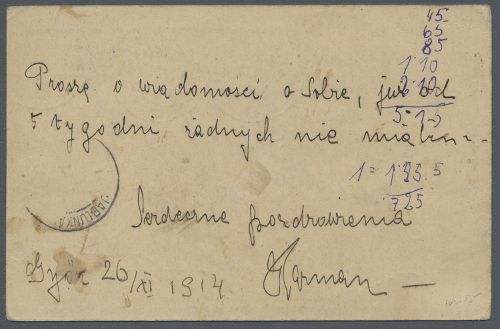 45
65
85
1 10
2 10
5 15
Proszę o wiadomości o Sobie, już od
5 tygodni żadnych nie
725
JABLUNKA
Serdeczne pozdrowienia
Győr 26/XI 1914.
Harman